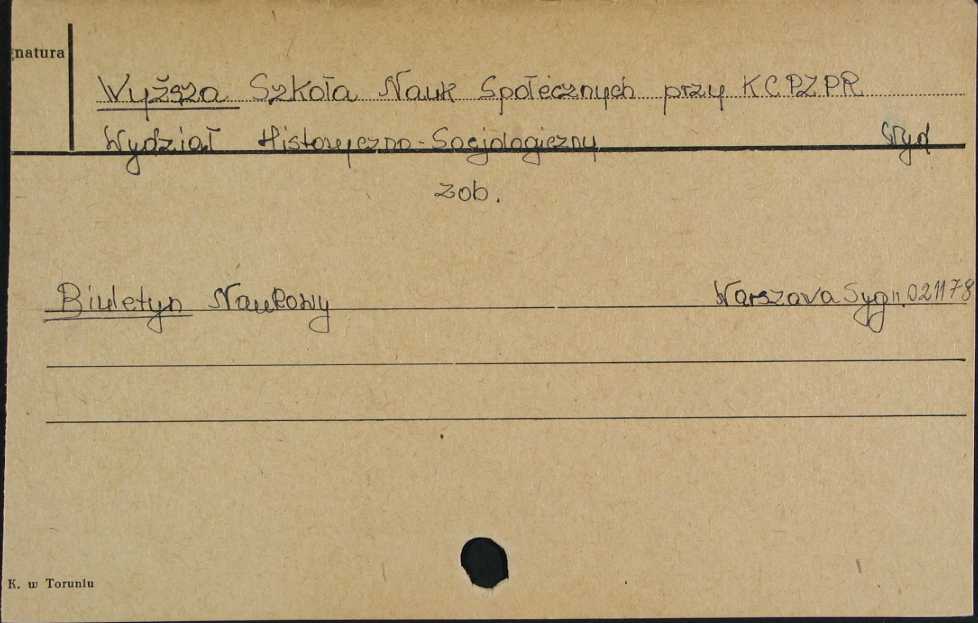 natura
Wyższa Szkoła Nauk Społecznych przy KC PZPR
Wydział Historyczno-Socjologiczny Wyd
zob.
Biuletyn Naukowy Warszawa Sygn. 021178
K. w Toruniu